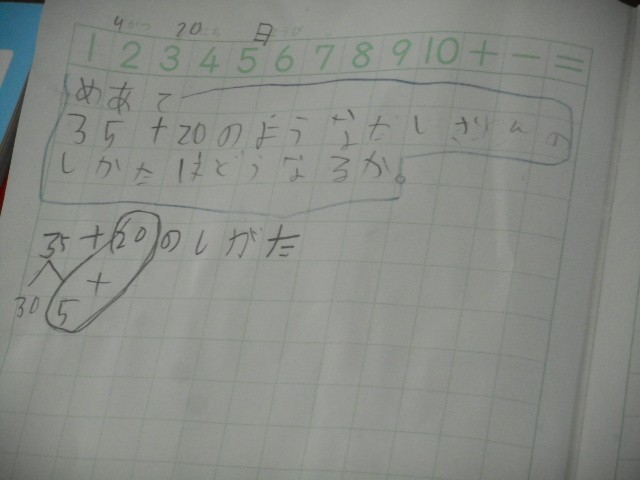 4 20 日
1 2 3 4 5 6 7 8 9 10 + - =
めあて
35+20のようなたしざんの
しかたはどうなるか。
35+20のしかた
+
30 5